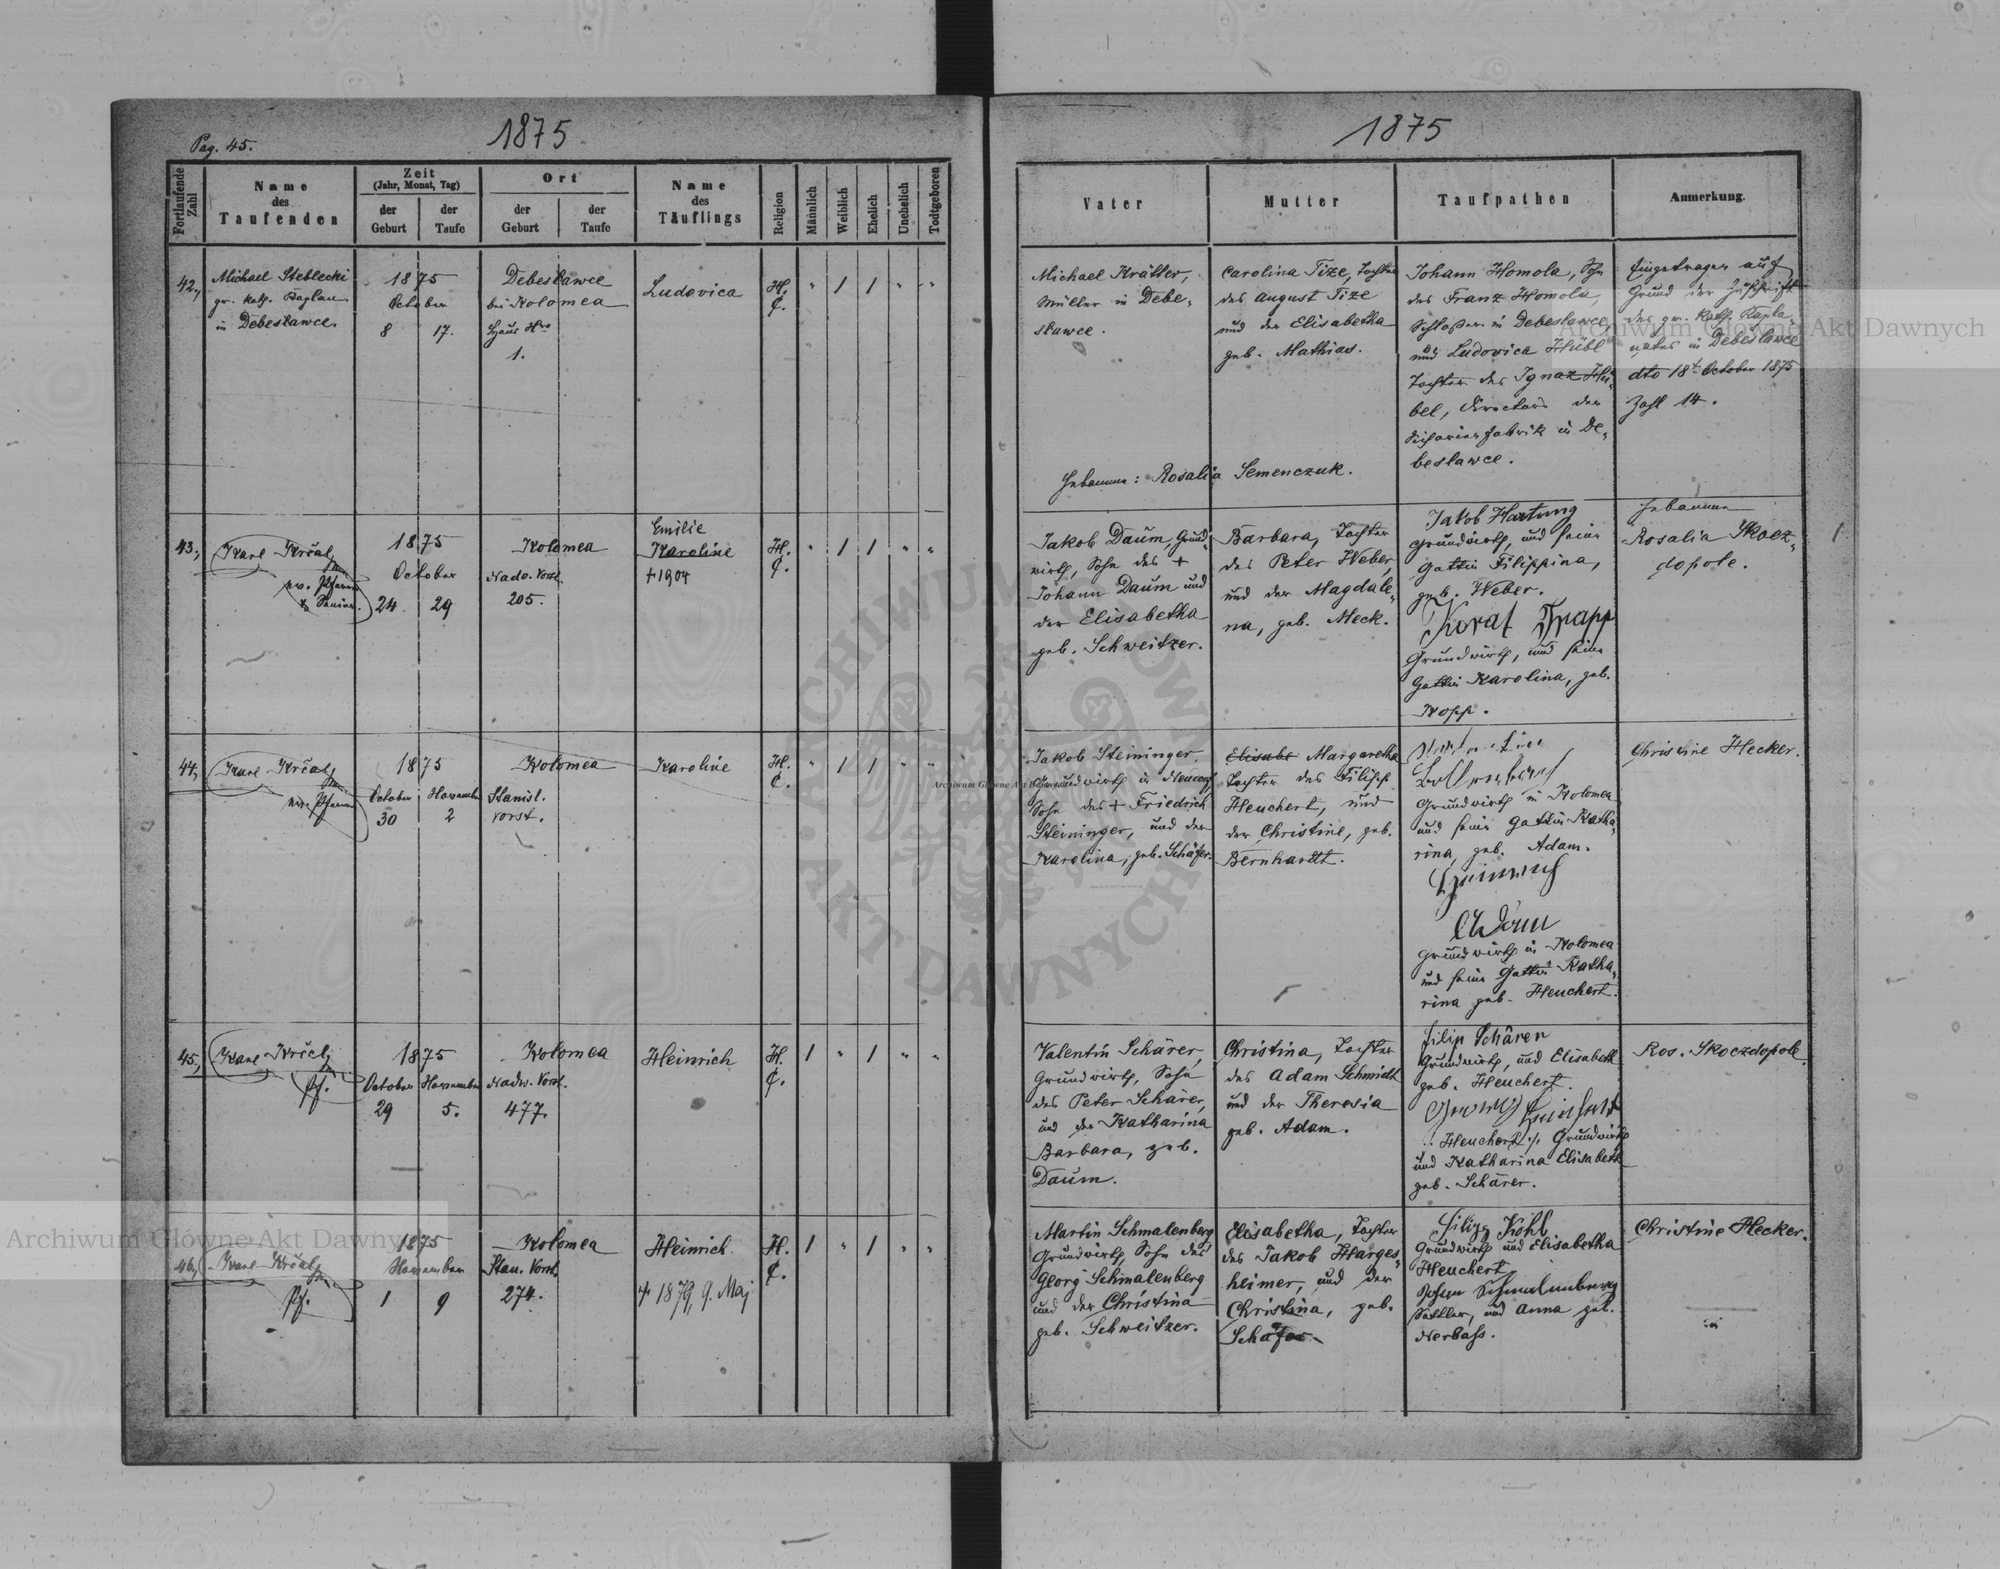 Pag. 45.
1875
1875
Fortlaufende Zahl
Name des Taufenden
Zeit
(Jahr, Monat, Tag)
der Geburt
der Taufe
Ort
der Geburt
der Taufe
Name des Täuflings
Religion
Männlich
Weiblich
Ehelich
Unehelich
Todtgeboren
Vater
Mutter
Taufpathen
Anmerkung.
42.,
Michael Steblecki
gr. kath. Kaplan
in Debeslawce.
1875
October
8 17.
Debeslawce
bei Kolomea
Haus Nro
1.
Ludovica
H.
C.
" / / " "
Michael Krätter,
Müller in Debe-
slawce.
Carolina Tize, Tochter
des August Tize
und der Elisabetha
geb. Mathias.
Johann Homola, Sohn
des Franz Homola,
Schlosser in Debeslawce,
und Ludovica Hübl
Tochter des Ignaz Hü-
bel, Directors der
Zichorienfabrik in De-
beslawce.
Eingetragen auf
Grund der Zuschrift
des gr. kath. Kapla-
nates in Debeslawce
dto 18t October 1875
Zahl 14.
Hebamme: Rosalia Semenczuk.
43.,
Karl Krčal
ev. Pfarrer
& Senior.
1875
October
24. 29
Kolomea
Nadw. Vorst.
205.
Emilie
Karoline
+ 1904
H.
C.
" / / " "
Jakob Daum, Grund-
wirth, Sohn des +
Johann Daum und
der Elisabetha
geb. Schweitzer.
Barbara, Tochter
des Peter Weber,
und der Magdale-
na, geb. Meck.
Jakob Hartung
Grundwirth, und seine
Gattin Filippina,
geb. Weber.
Trapp
Grundwirth, und seine
Gattin Karolina, geb.
Kopp.
Hebamme
Rosalia Skocz-
dopole.
44.,
Karl Krčal
ev. Pfarrer
1875
October November
30 2
Kolomea
Stanisl.
Vorst.
Karoline
H.
C.
" / / " "
Jakob Steininger.
Grundwirth in Neudorf,
Sohn des + Friedrich
Steininger, und der
Karolina, geb. Schäfer.
Elisabe Margaretha
Tochter des Filipp
Heuchert, und
der Christine, geb.
Bernhardt.
Grundwirth in Kolomea
und seine Gattin Katha-
rina, geb. Adam.
Heinrich
Adam
Grundwirth in Kolomea
und seine Gattin Katha-
rina geb. Heuchert.
Christine Hecker.
45.,
Karl Krčal
Pf.
1875
October November
29 5.
Kolomea
Nadw. Vorst.
477.
Heinrich
H.
C.
/ " / " "
Valentin Schärer,
Grundwirth, Sohn
des Peter Schärer,
und der Katharina
Barbara, geb.
Daum.
Christina, Tochter
des Adam Schmidt
und der Theresia
geb. Adam.
Filip Schären
Grundwirth, und Elisabeth
geb. Heuchert.
Heuchert ./. Grundwirth
und Katharina Elisabeth
geb. Schärer.
Ros. Skoczdopole
46.,
Karl Krčal
Pf.
1875
November
1 9
Kolomea
Stan. Vorst.
274.
Heinrich.
+ 1879, 9. Maj
H.
C.
/ " / " "
Martin Schmalenberg
Grundwirth, Sohn des
Georg Schmalenberg
und der Christina
geb. Schweitzer.
Elisabetha, Tochter
des Jakob Harges-
heimer, und der
Christina, geb.
Schäfer.
Filipp Kohl
Grundwirth und Elisabetha
Heuchert
Schmalenberg
Sattler, und Anna geb.
Nerbass.
Christine Hecker.
Archiwum Główne Akt Dawnych
Archiwum Główne Akt Dawnych
Archiwum Główne Akt Dawnych
ARCHIWUM GŁÓWNE AKT DAWNYCH